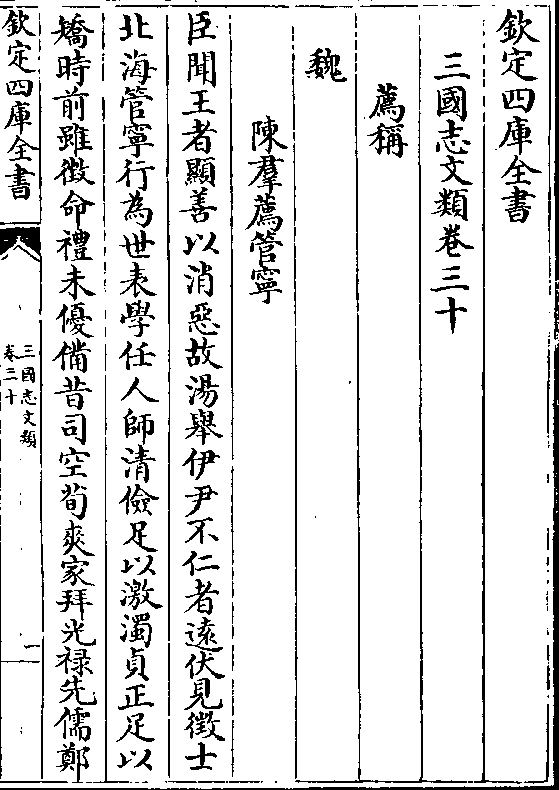 欽定四庫全書
三國志文類卷三十
薦稱
魏
陳羣薦管寧
臣聞王者顯善以消惡故湯舉伊尹不仁者遠伏見徵士
北海管寧行為世表學任人師清儉足以激濁貞正足以
矯時前雖徵命禮未優備昔司空荀爽家拜光禄先儒鄭
欽定四庫全書
三國志文類
卷三十
一